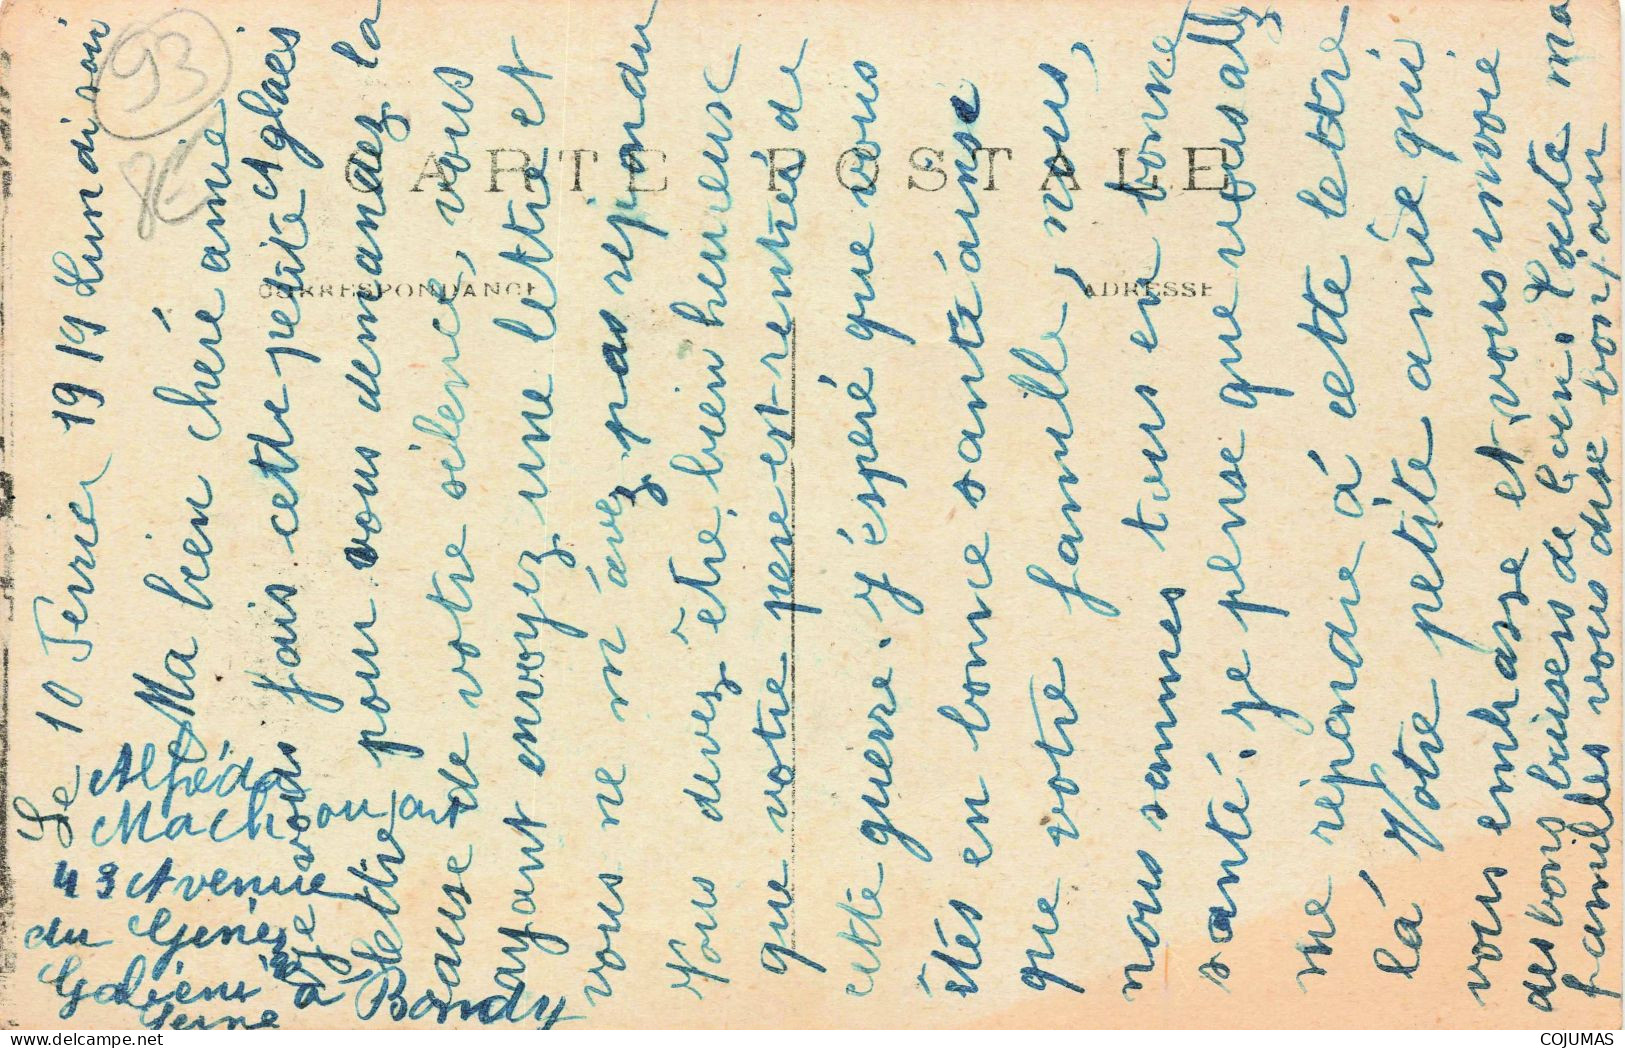 Le 10 Fevrier 1919 Lundi soir
Ma bien cheré amie
je vous fais cette petite Aglaes
lettre pour vous demandez la
cause de votre silence, vous
ayant envoyez une lettre et
vous ne m'avez pas repondu
Vous devez être, bien heureuse
que votre pere est rentrée de
cette guerre. j'éspéré que vous
étes en bonne santé áinsi
que votre famille, nous,
nous sommes tous en bonne
santé. je pense que vous allez
me répondre á cette lettre
lá Votre petite amie qui
vous embrasse et vous invoie
des bons baisers de loin. Toute ma
familles vous dise bonjour
Alfréda
Machouart
43 Avenue
du Génér
Galiéni
á Bondy
Seine
CARTE POSTALE
CORRESPONDANCE
ADRESSE
93
8€
COJUMAS